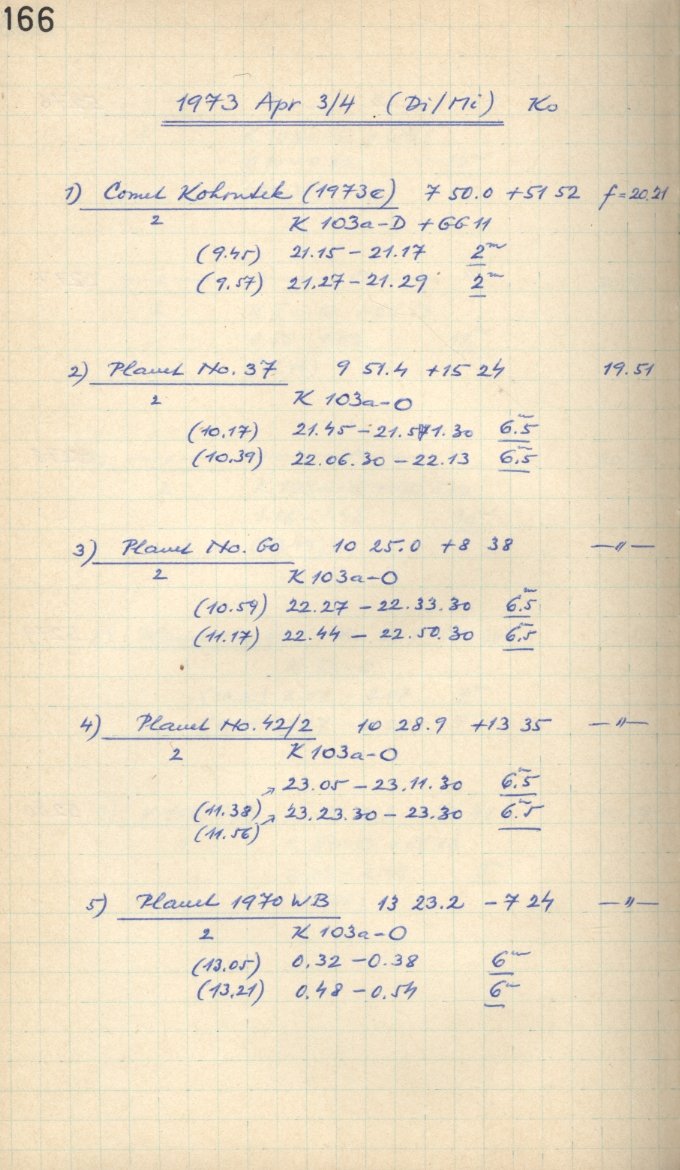 166
1973 Apr 3/4 (Di/Mi) Ko
1) Comet Kohoutek (1973e) 7 50.0 +51 52 f=20.21
2 K 103a-D + GG 11
(9.45) 21.15 – 21.17 2m
(9.57) 21.27 – 21.29 2m
2) Planet No. 37 9 51.4 +15 24 19.51
2 K 103a-O
(10.17) 21.45 – 21.51.30 6.5m
(10.39) 22.06.30 – 22.13 6.5m
3) Planet No. 60 10 25.0 +8 38 —"—
2 K 103a-O
(10.59) 22.27 – 22.33.30 6.5m
(11.17) 22.44 – 22.50.30 6.5m
4) Planet No. 42/2 10 28.9 +13 35 —"—
2 K 103a-O
23.05 – 23.11.30 6.5m
(11.38) 23.23.30 – 23.30 6.5m
(11.56)
5) Planet 1970 WB 13 23.2 –7 24 —"—
2 K 103a-O
(13.05) 0.32 – 0.38 6m
(13.21) 0.48 – 0.54 6m